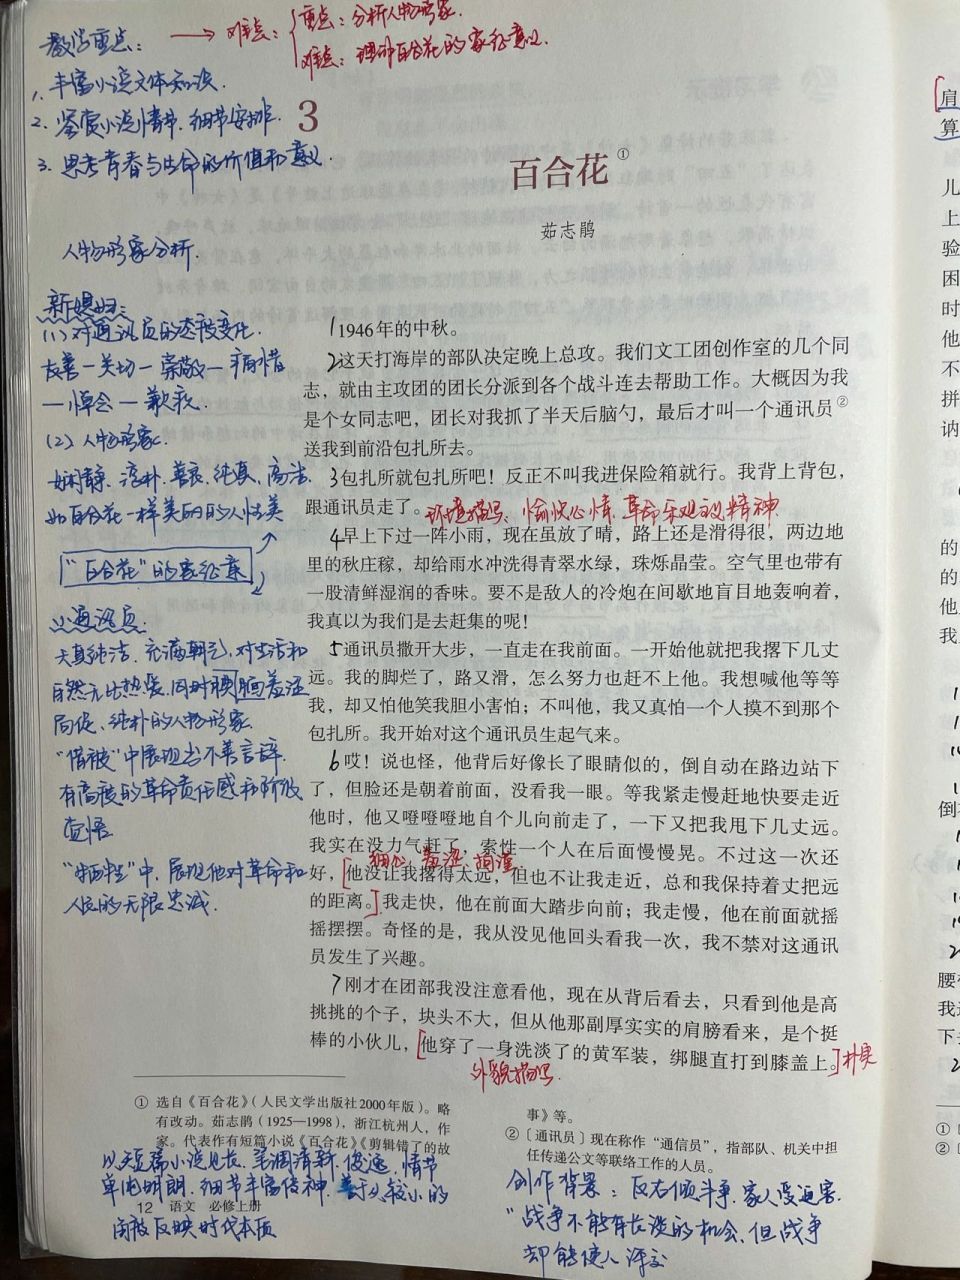 教学重点：
→ 难点：
重点：分析人物形象.
难点：理解百合花的象征意义.
1、丰富小说文体知识.
2、鉴赏小说情节、细节安排.
3、思考青春与生命的价值和意义.
3
百合花①
茹志鹃
人物形象分析.
新媳妇：
(1) 对通讯员的态度变化.
友善—关切—崇敬—痛惜
—悼念—歉疚.
(2) 人物形象.
娴静、淳朴、善良、纯真、高洁.
如百合花一样美的人性美
"百合花"的象征意
小通讯员.
天真纯洁、充满朝气、对生活和
自然无比热爱、同时腼腆羞涩
局促、纯朴的人物形象.
"借被"中展现出不善言辞.
有高度的革命责任感和阶级
觉悟.
"牺牲"中，展现他对革命和
人民的无限忠诚.
1 1946年的中秋。
2 这天打海岸的部队决定晚上总攻。我们文工团创作室的几个同
志，就由主攻团的团长分派到各个战斗连去帮助工作。大概因为我
是个女同志吧，团长对我抓了半天后脑勺，最后才叫一个通讯员②
送我到前沿包扎所去。
3 包扎所就包扎所吧！反正不叫我进保险箱就行。我背上背包，
跟通讯员走了。 环境描写、愉悦心情、革命乐观主义精神
4 早上下过一阵小雨，现在虽放了晴，路上还是滑得很，两边地
里的秋庄稼，却给雨水冲洗得青翠水绿，珠烁晶莹。空气里也带有
一股清鲜湿润的香味。要不是敌人的冷炮在间歇地盲目地轰响着，
我真以为我们是去赶集的呢！
5 通讯员撒开大步，一直走在我前面。一开始他就把我撂下几丈
远。我的脚烂了，路又滑，怎么努力也赶不上他。我想喊他等等
我，却又怕他笑我胆小害怕；不叫他，我又真怕一个人摸不到那个
包扎所。我开始对这个通讯员生起气来。
6 哎！说也怪，他背后好像长了眼睛似的，倒自动在路边站下
了，但脸还是朝着前面，没看我一眼。等我紧走慢赶地快要走近
他时，他又噔噔噔地自个儿向前走了，一下又把我甩下几丈远。
我实在没力气赶了，索性一个人在后面慢慢晃。不过这一次还
细心、羞涩、拘谨
好，[他没让我撂得太远，但也不让我走近，总和我保持着丈把远
的距离。]我走快，他在前面大踏步向前；我走慢，他在前面就摇
摇摆摆。奇怪的是，我从没见他回头看我一次，我不禁对这通讯
员发生了兴趣。
7 刚才在团部我没注意看他，现在从背后看去，只看到他是高
挑挑的个子，块头不大，但从他那副厚实实的肩膀看来，是个挺
棒的小伙儿，[他穿了一身洗淡了的黄军装，绑腿直打到膝盖上。] 朴实
外貌描写.
① 选自《百合花》（人民文学出版社2000年版）。略
有改动。茹志鹃（1925—1998），浙江杭州人，作
家。代表作有短篇小说《百合花》《剪辑错了的故
事》等。
② 〔通讯员〕现在称作“通信员”，指部队、机关中担
任传递公文等联络工作的人员。
以短篇小说见长、笔调清新、俊逸、情节
单纯明朗、细节丰富传神、善于从较小的
角度反映时代本质
12 语文 必修上册
创作背景：反右倾斗争、家人受迫害.
"战争不能有长谈的机会、但战争
却能使人深交
肩
算